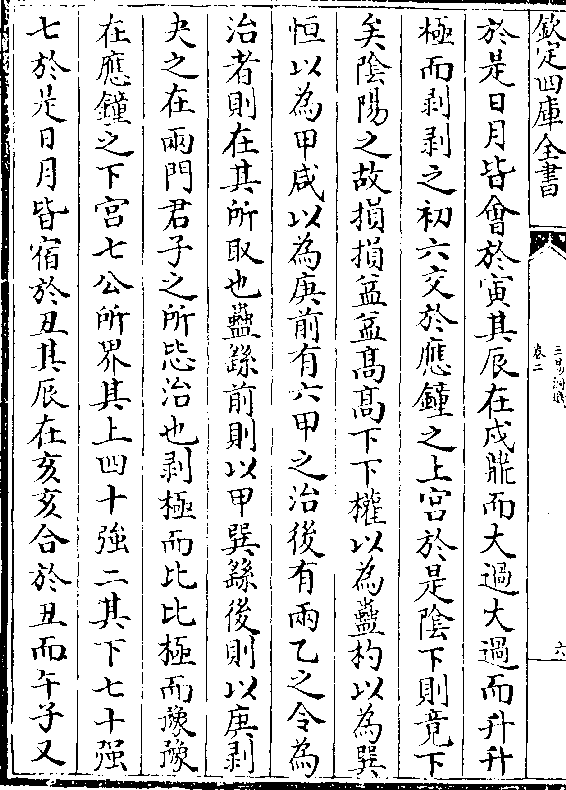 欽定四庫全書
三易洞璣
卷二
六
於是日月皆會於寅其辰在戍鼎而大過大過而升升
極而剥剥之初六交於應鐘之上宫於是隂下則竟下
矣隂陽之故損損益益髙髙下下權以為蠱杓以為巽
恒以為甲咸以為庚前有六甲之治後有兩乙之令為
治者則在其所取也蠱繇前則以甲巽繇後則以庚剥
夬之在兩門君子之所毖治也剥極而比比極而豫豫
在應鐘之下宫七公所界其上四十強二其下七十强
七於是日月皆宿於丑其辰在亥亥合於丑而午子又